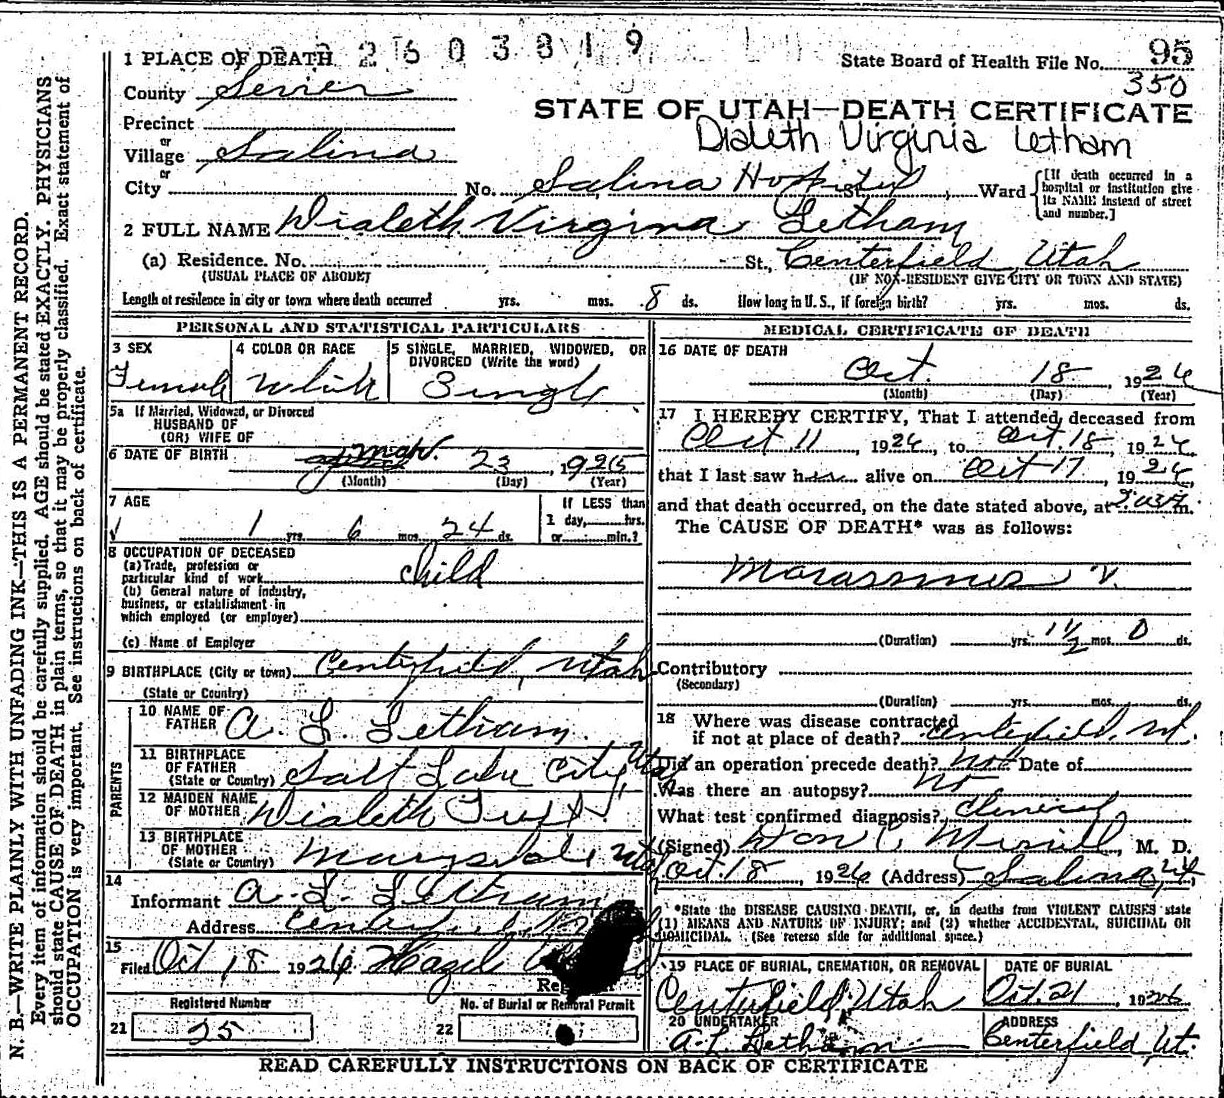 2603819
95
1 PLACE OF DEATH
State Board of Health File No.
350
County Sevier
STATE OF UTAH—DEATH CERTIFICATE
Precinct
Dialeth Virginia Letham
or
Village Salina
or
City No. Salina Hospital St., Ward
[If death occurred in a hospital or institution give its NAME instead of street and number.]
2 FULL NAME Dialeth Virginia Letham
(a) Residence. No. St., Centerfield, Utah
(USUAL PLACE OF ABODE) (IF NON-RESIDENT GIVE CITY OR TOWN AND STATE)
Length of residence in city or town where death occurred yrs. mos. 8 ds. How long in U. S., if foreign birth? yrs. mos. ds.
PERSONAL AND STATISTICAL PARTICULARS
3 SEX
Female
4 COLOR OR RACE
White
5 SINGLE, MARRIED, WIDOWED, OR DIVORCED (Write the word)
Single
5a If Married, Widowed, or Divorced
HUSBAND OF
(OR) WIFE OF
6 DATE OF BIRTH Mar. 23, 1925
(Month) (Day) (Year)
7 AGE
1 yrs. 6 mos. 24 ds.
If LESS than
1 day, hrs.
or min.?
8 OCCUPATION OF DECEASED
(a) Trade, profession or
particular kind of work child
(b) General nature of industry,
business, or establishment in
which employed (or employer)
(c) Name of Employer
9 BIRTHPLACE (City or town) Centerfield, Utah
(State or Country)
PARENTS
10 NAME OF
FATHER A. L. Letham
11 BIRTHPLACE
OF FATHER
(State or Country) Salt Lake City, Utah
12 MAIDEN NAME
OF MOTHER Dialeth
13 BIRTHPLACE
OF MOTHER
(State or Country) Marysvale Utah
14
Informant A. L. Letham
Address Centerfield
15
Filed Oct 18 1926 Hazel
Registered Number
21 25
No. of Burial or Removal Permit
22
MEDICAL CERTIFICATE OF DEATH
16 DATE OF DEATH
Oct. 18, 1926
(Month) (Day) (Year)
17 I HEREBY CERTIFY, That I attended deceased from
Oct 11, 1926, to Oct. 18, 1926,
that I last saw her alive on Oct 17, 1926,
and that death occurred, on the date stated above, at m.
The CAUSE OF DEATH* was as follows:
Marasmus
(Duration) yrs. 1 1/2 mos. 0 ds.
Contributory
(Secondary)
(Duration) yrs. mos. ds.
18 Where was disease contracted
if not at place of death? Centerfield, Ut.
Did an operation precede death? no Date of
Was there an autopsy? no
What test confirmed diagnosis? Clinical
(Signed) Don C. Merrill, M. D.
Oct. 18, 1926 (Address) Salina, Ut.
*State the DISEASE CAUSING DEATH, or, in deaths from VIOLENT CAUSES state
(1) MEANS AND NATURE OF INJURY; and (2) whether ACCIDENTAL, SUICIDAL OR
HOMICIDAL. (See reverse side for additional space.)
19 PLACE OF BURIAL, CREMATION, OR REMOVAL
Centerfield, Utah
DATE OF BURIAL
Oct. 21, 1926
20 UNDERTAKER
A. L. Letham
ADDRESS
Centerfield, Ut.
READ CAREFULLY INSTRUCTIONS ON BACK OF CERTIFICATE
N. B.—WRITE PLAINLY WITH UNFADING INK—THIS IS A PERMANENT RECORD.
Every item of information should be carefully supplied. AGE should be stated EXACTLY. PHYSICIANS
should state CAUSE OF DEATH in plain terms, so that it may be properly classified. Exact statement of
OCCUPATION is very important. See instructions on back of certificate.